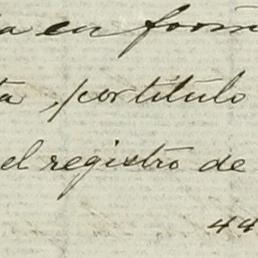 a en form
ta, por titulo
el registro de
44